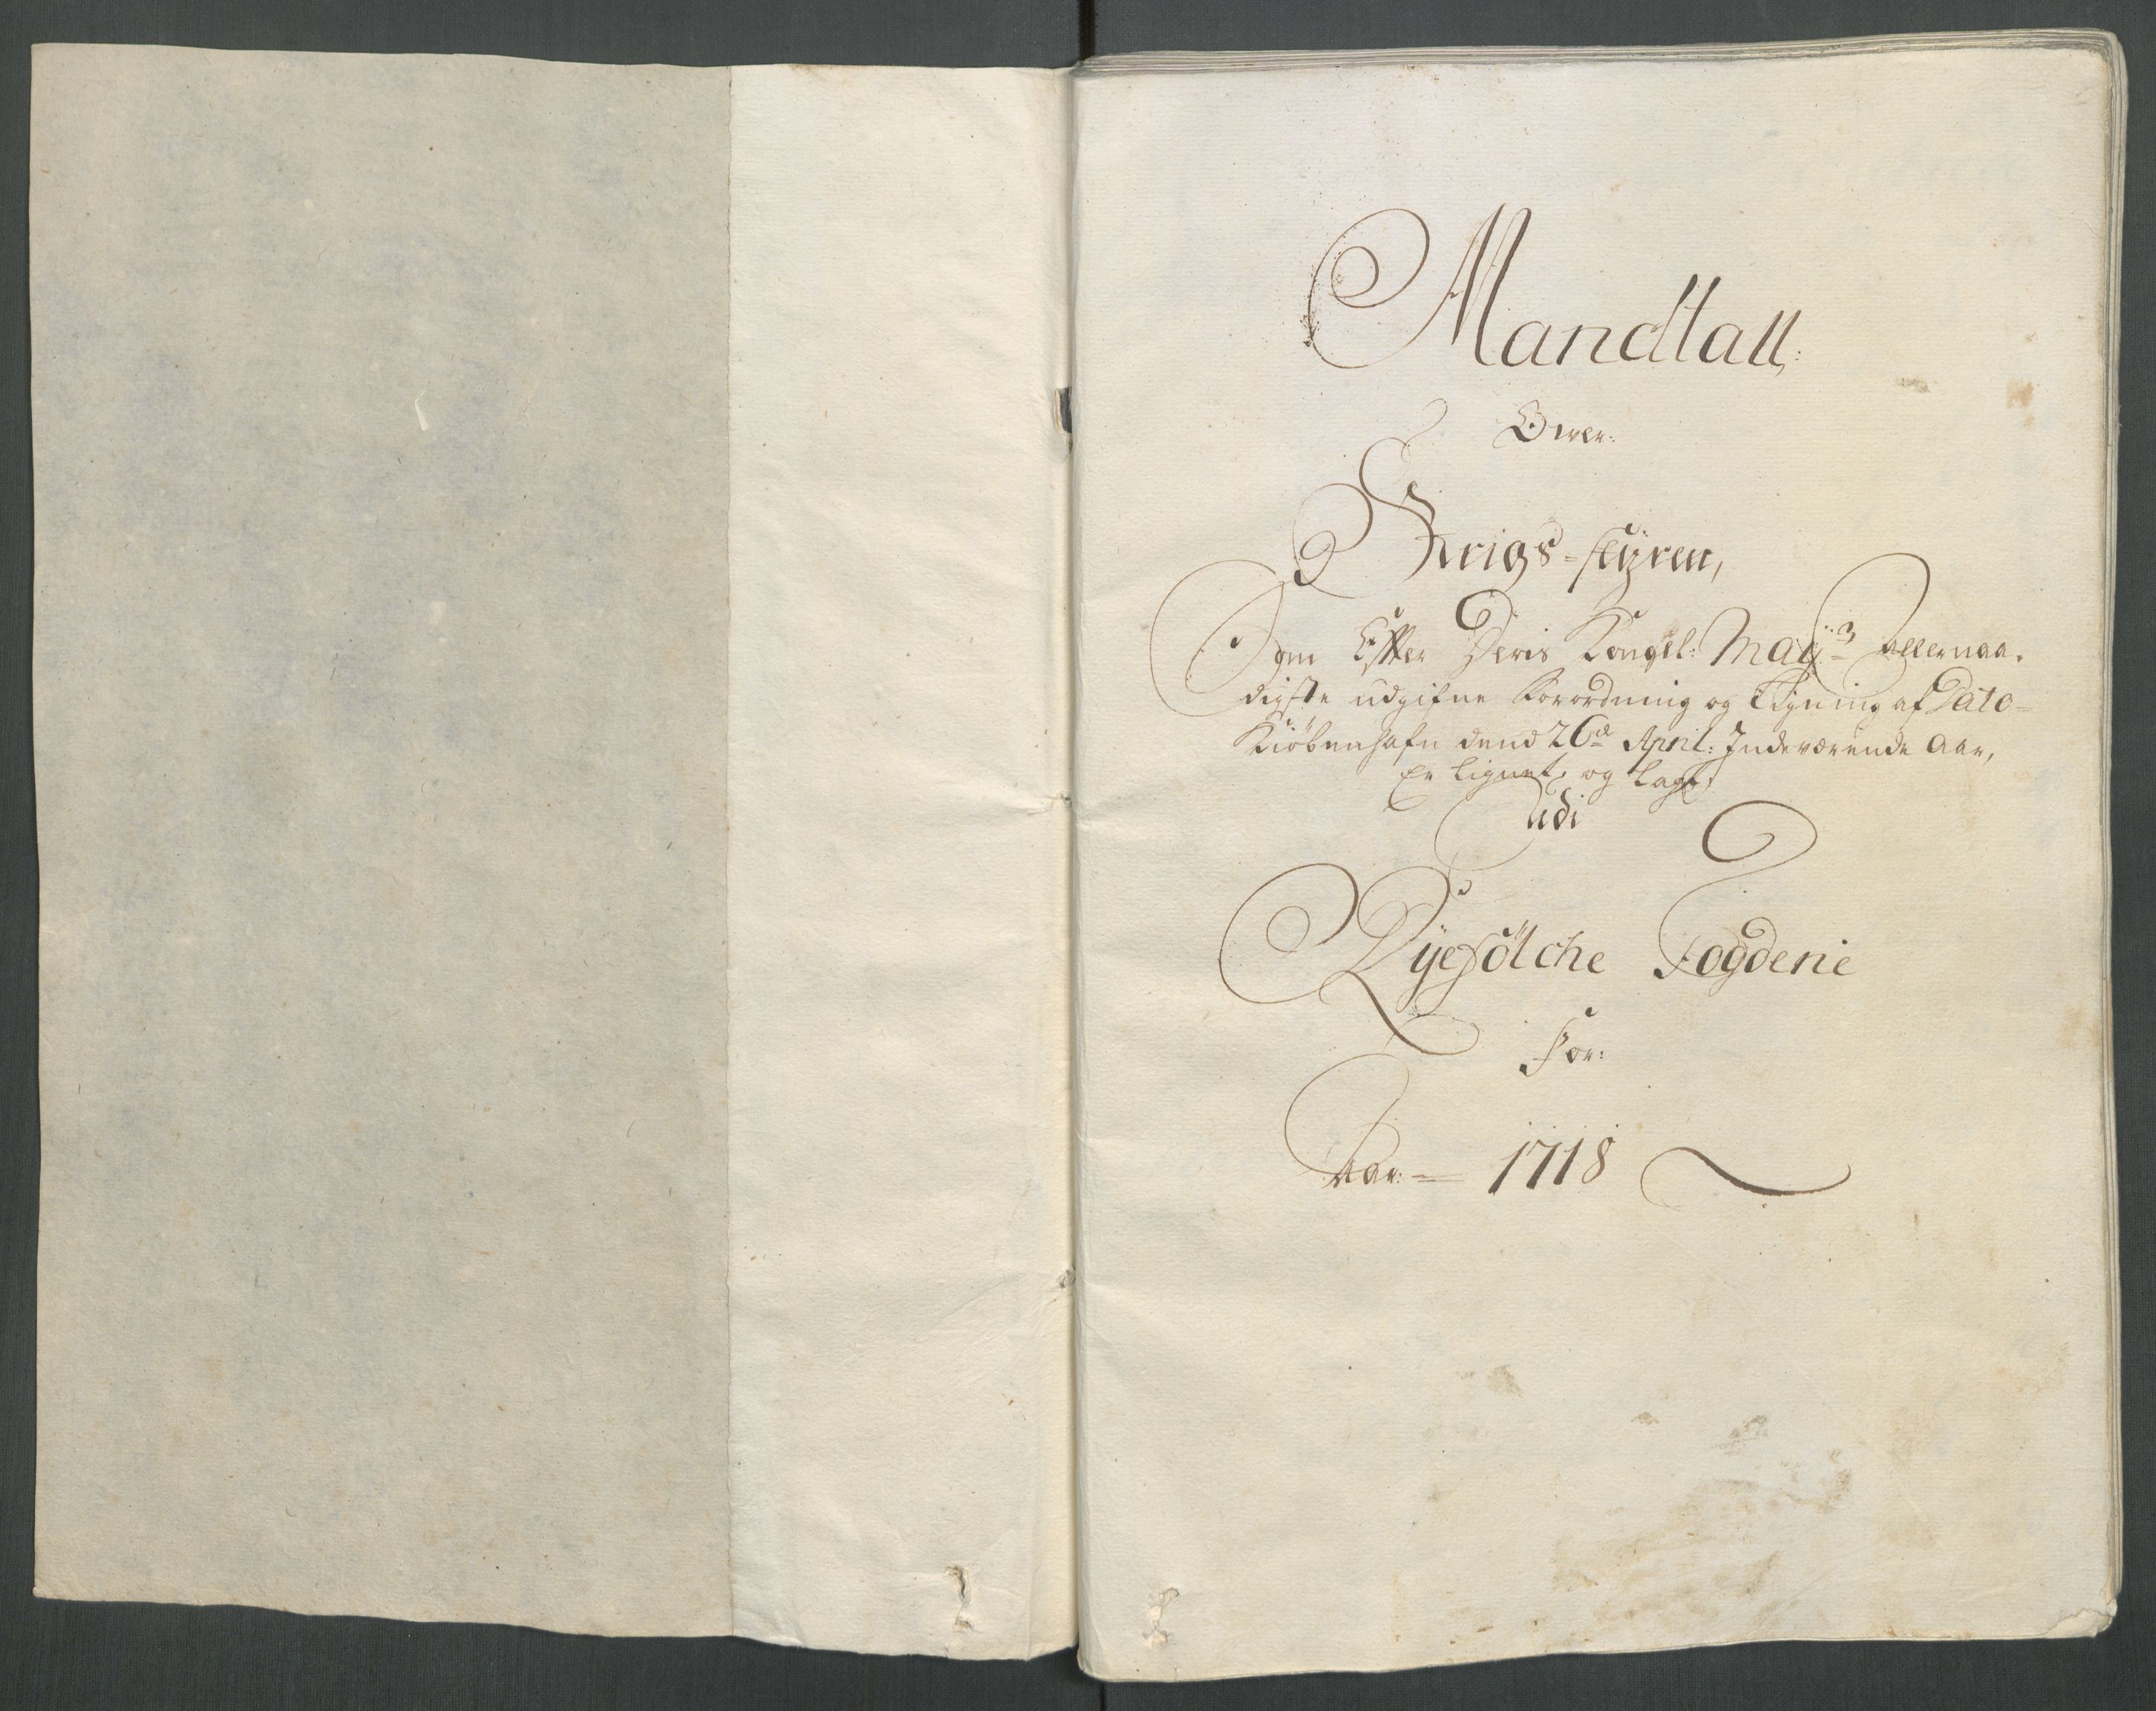 Mandtall:
Over:
Krigs-styren,
Som Efter Deris Kongel: Maÿ: Allernaa-
digste udgifne Forordning og Ligning af Dato
Kiöbenhafn dend 26de April: Indeværende Aar,
Er lignet og lagt
udi
Ryefölche Fogderie
For:
Aar: = 1718